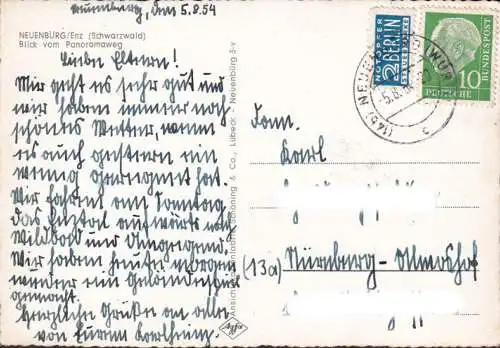 Neuenbürg, den 5.8.54
NEUENBÜRG/Enz (Schwarzwald)
Blick vom Panoramaweg
Liebe Eltern!
Mir geht es sehr gut und
wir haben immer noch
schönes Wetter, wenn
es auch gestern ein
wenig geregnet hat.
Wir fahren am Sonntag
das Enztal aufwärts nach
Wildbad und Umgegend.
Wir haben heute morgen
wieder ein Geländespiel
gemacht.
Herzliche Grüße an alle
von Eurem Karlheinz.
Schöning & Co., Lübeck · Neuenbürg 3-v
Agfa
NOTOPFER
2 BERLIN
STEUERMARKE
10
DEUTSCHE
BUNDESPOST
(14b) NEUENBÜRG (WÜRTT)
Fam.
Karl
(13a) Nürnberg-Almoshof